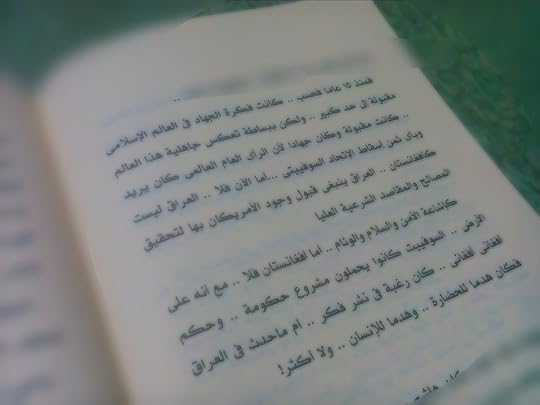 فمنذ ١٥ عاما فحسب .. كانت فكرة الجهاد فى العالم الإسلامى
مقبولة إلى حد كبير .. ولكن ببساطة تعكس جاهلية هذا العالم
.. كانت مقبولة وكان جهادا لأن الرأى العام العالمى كان يريد
وبأى ثمن إسقاط الإتحاد السوفييتى ...أما الآن فلا .. العراق ليست
كأفغانستان .. العراق ينبغى قبول وجود الأمريكان بها لتحقيق
المصالح والمقاصد الشرعية العليا
كإشاعة الأمن والسلام والوئام .. أما أفغانستان فلا .. مع أنه على
الأرض .. السوفييت كانوا يحملون مشروع حكومة .. وحكم
أفغانى أفغانى .. كان رغبة فى نشر فكر .. أم ماحدث فى العراق
فكان هدما للحضارة .. وهدما للإنسان .. ولا أكثر!